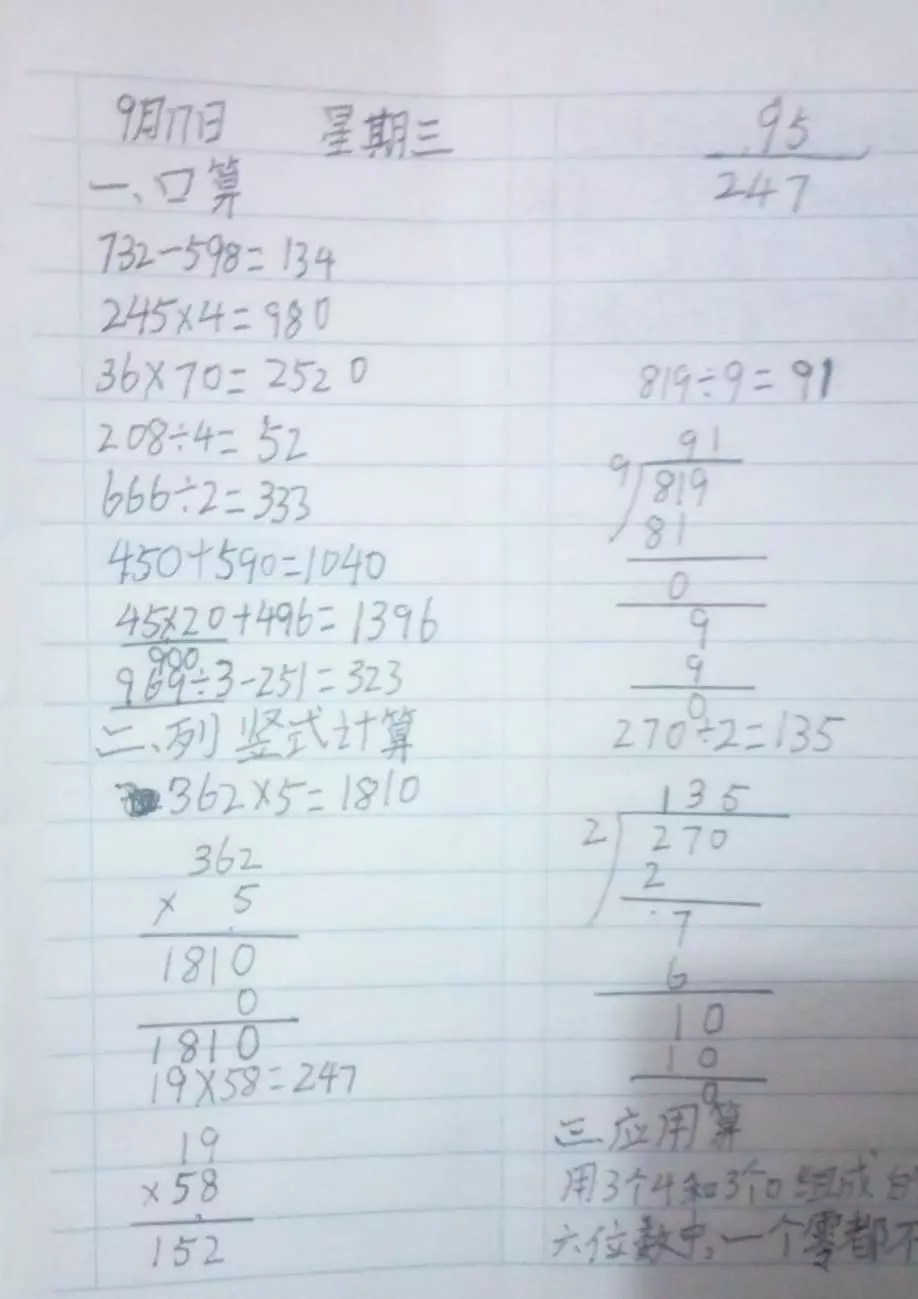 9月17日 星期三
一、口算
732-598=134
245×4=980
36×70=2520
208÷4=52
666÷2=333
450+590=1040
45×20+496=1396
900
969÷3-251=323
二、列竖式计算
362×5=1810
362
× 5
1810
0
1810
19×58=247
19
×58
152
95
247
819÷9=91
91
9 819
81
0
9
9
0
270÷2=135
135
2 270
2
7
6
10
10
0
三应用算
用3个4和3个0组成
六位数中,一个零都不